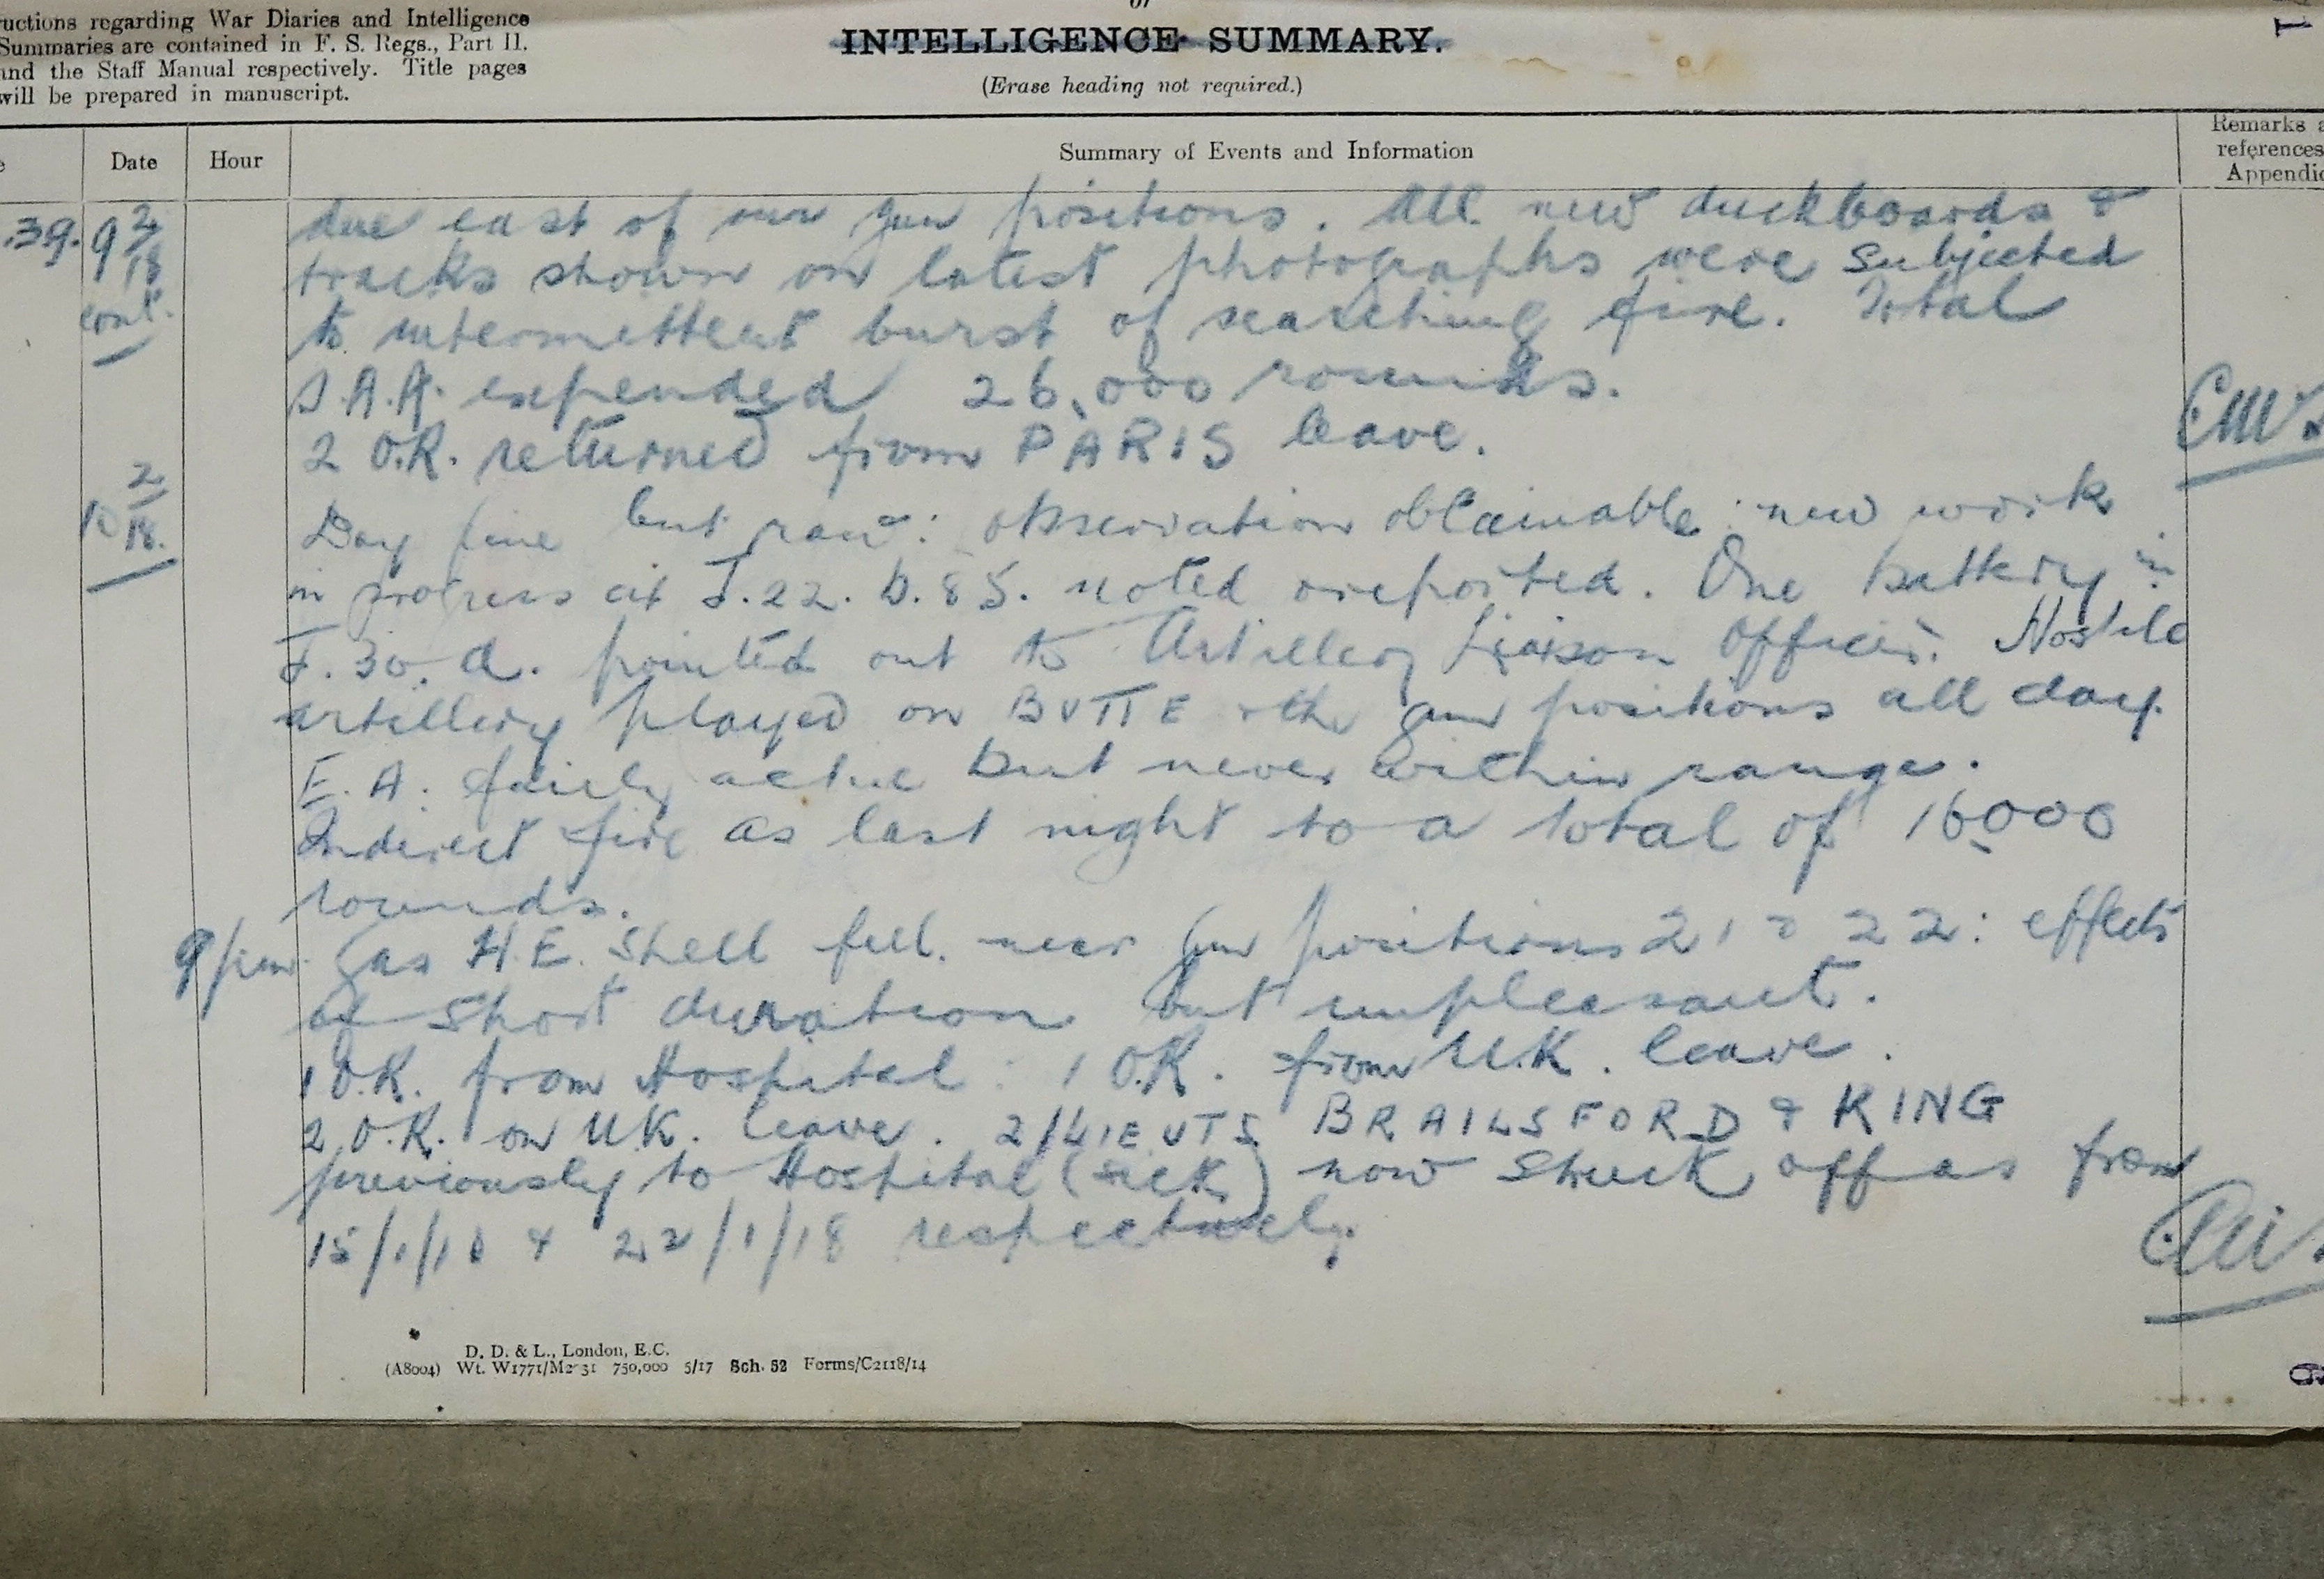 or
uctions regarding War Diaries and Intelligence
Summaries are contained in F. S. Regs., Part II.
and the Staff Manual respectively. Title pages
will be prepared in manuscript.
INTELLIGENCE SUMMARY.
(Erase heading not required.)
e
Date
Hour
Summary of Events and Information
Remarks a
references
Appendic
.39.
9 2/18
cont.
due east of our gun positions. All new duckboards &
tracks shown on latest photographs were subjected
to intermittent burst of searching fire. Total
S.A.A. expended 26,000 rounds.
2 O.R. returned from PARIS leave.
10 2/18.
Day fine but raw: observation obtainable: new work
in progress at J.22.b.85. noted & reported. One battery in
J.30.a. pointed out to Artillery Liaison Officer. Hostile
artillery played on BUTTE & the gun positions all day.
E.A. fairly active but never within range.
Indirect fire as last night to a total of 16,000
rounds.
9 pm. Gas H.E. Shell fell near gun positions 21 & 22: effects
of short duration but unpleasant.
1 O.R. from Hospital: 1 O.R. from U.K. leave.
2 O.R. on U.K. leave. 2/LIEUTS BRAILSFORD & KING
previously to Hospital (sick) now struck off as from
15/1/18 & 22/1/18 respectively.
D. D. & L., London, E.C.
(A8004) Wt. W1771/M2 31 750,000 5/17 Sch. 52 Forms/C2118/14